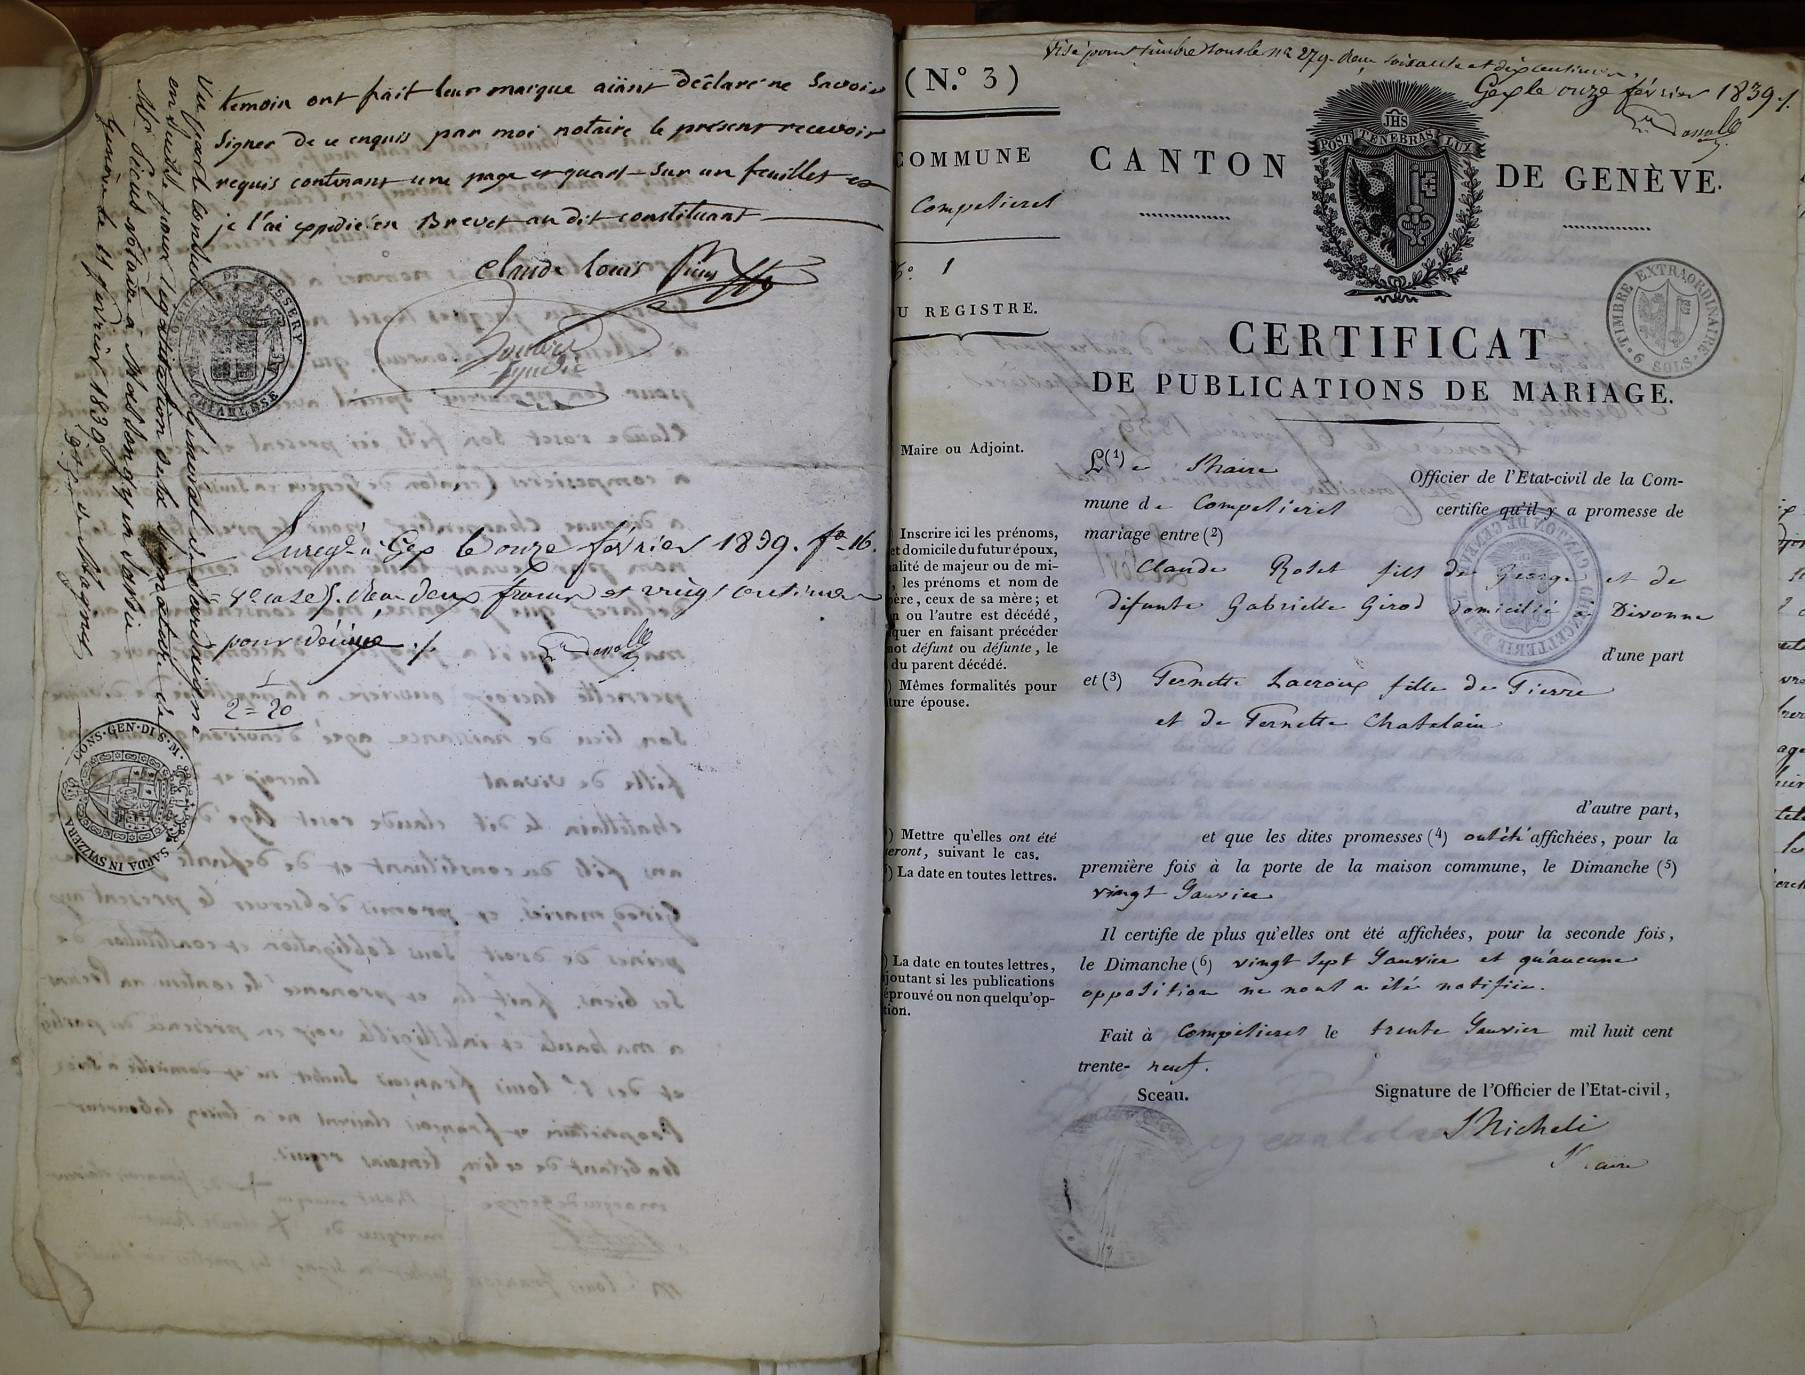 temoin ont fait leur marque aiänt déclaré ne Savoir
Signer de ce enquis par moi notaire le présent recevoir
requis contenant une page et quart sur un feuillet et
je l'ai expedié en Brevet au dit constituant
Claude Louis
Syndic
Vu par le Consulat Général de Sardaigne
en Suisse pour légalisation de la Signature de
Mr Picus notaire à Massongy en Savoie
Genève le 11 février 1839
DE MESSERY
CHABLESE
CONS. GEN. DI S. M.
SARDA IN SVIZZERA
Enregé à Gex le onze février 1839. fo 16.
Vo case 5. Reçu deux francs et vingt centimes
pour décime ./.
2 = 20
Visé pour timbre sous le No 279. Reçu soixante et dix centimes.
Gex le onze février 1839 ./.
(N.o 3)
COMMUNE
Compesieres
No. 1
U REGISTRE.
CANTON DE GENÈVE.
JHS
POST TENEBRAS LUX
TIMBRE EXTRAORDINAIRE
9 SOLS
CERTIFICAT
DE PUBLICATIONS DE MARIAGE.
Maire ou Adjoint.
L(1) e Maire Officier de l'Etat-civil de la Com-
mune de Compesieres certifie qu'il y a promesse de
mariage entre (2)
Claude Roset fils de George et de
défunte Gabrielle Girod domicilié à Divonne
d'une part
et (3) Pernette Lacroix fille de Pierre
et de Pernette Chatelain
d'autre part,
et que les dites promesses (4) ont été affichées, pour la
première fois à la porte de la maison commune, le Dimanche (5)
vingt Janvier
Il certifie de plus qu'elles ont été affichées, pour la seconde fois,
le Dimanche (6) vingt Sept Janvier et qu'aucune
opposition ne nous a été notifiée.
Fait à Compesieres le trente Janvier mil huit cent
trente- neuf.
Sceau. Signature de l'Officier de l'Etat-civil,
Micheli
Maire
) Inscrire ici les prénoms,
et domicile du futur époux,
alité de majeur ou de mi-
, les prénoms et nom de
père, ceux de sa mère; et
n ou l'autre est décédé,
quer en faisant précéder
mot défunt ou défunte, le
du parent décédé.
) Mêmes formalités pour
ture épouse.
) Mettre qu'elles ont été
seront, suivant le cas.
) La date en toutes lettres.
) La date en toutes lettres,
joutant si les publications
éprouvé ou non quelqu'op-
tion.